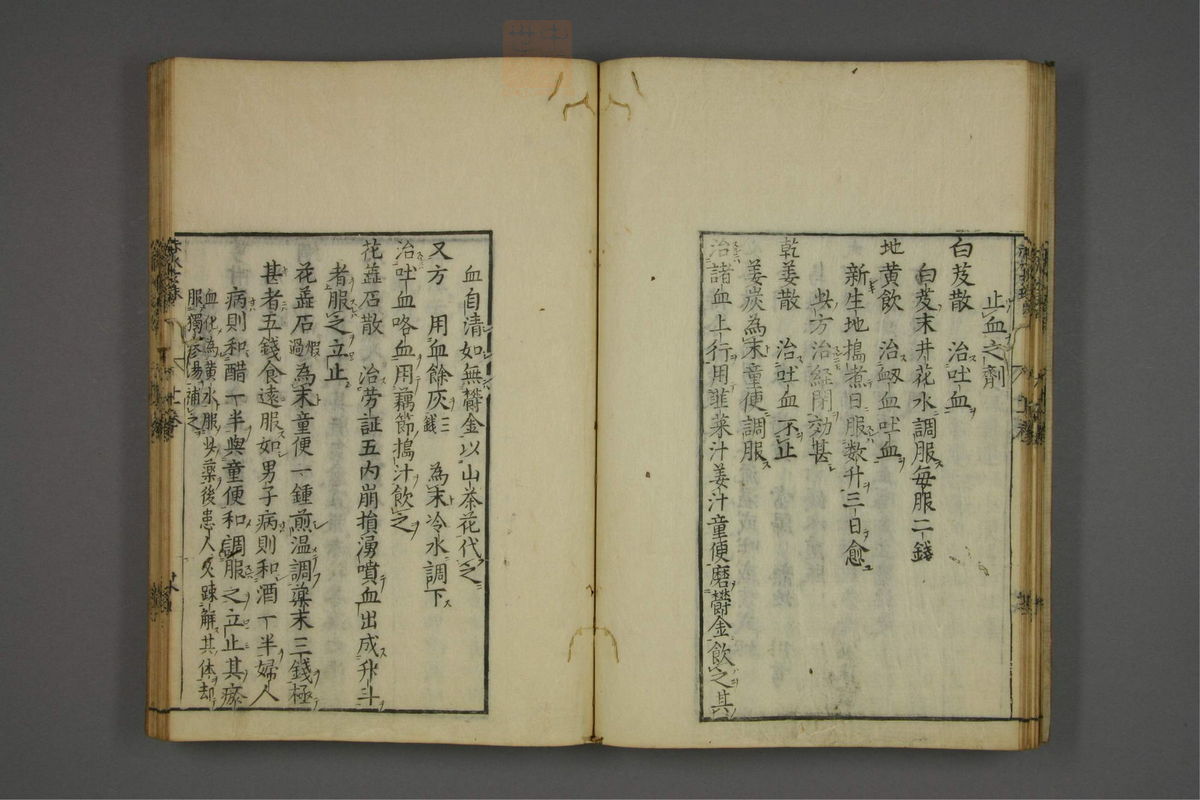 止血之劑
白芨散　治吐血
白芨末井花水調服每服二錢
地黄飲　治衂血吐血
新生地搗煮日服数升三日愈
此方治経閉効甚
乾姜散　治吐血不止
姜炭為末童便調服
治諸血上行用韮菜汁姜汁童便磨欝金飲之其
血自清如無欝金以山茶花代之
又方　用血餘灰三錢　為末冷水調下
治吐血咯血用藕節搗汁飲之
花蕋石散　治劳証五内崩損湧噴血出成升斗
者服之立止
花蕋石煆過為末童便一鍾煎温調藥末三錢極
甚者五錢食遠服如男子病則和酒一半婦人
病則和醋一半與童便和調服之立止其瘀
血化為黄水服此藥後患人必踈解其体却
服獨参湯補之